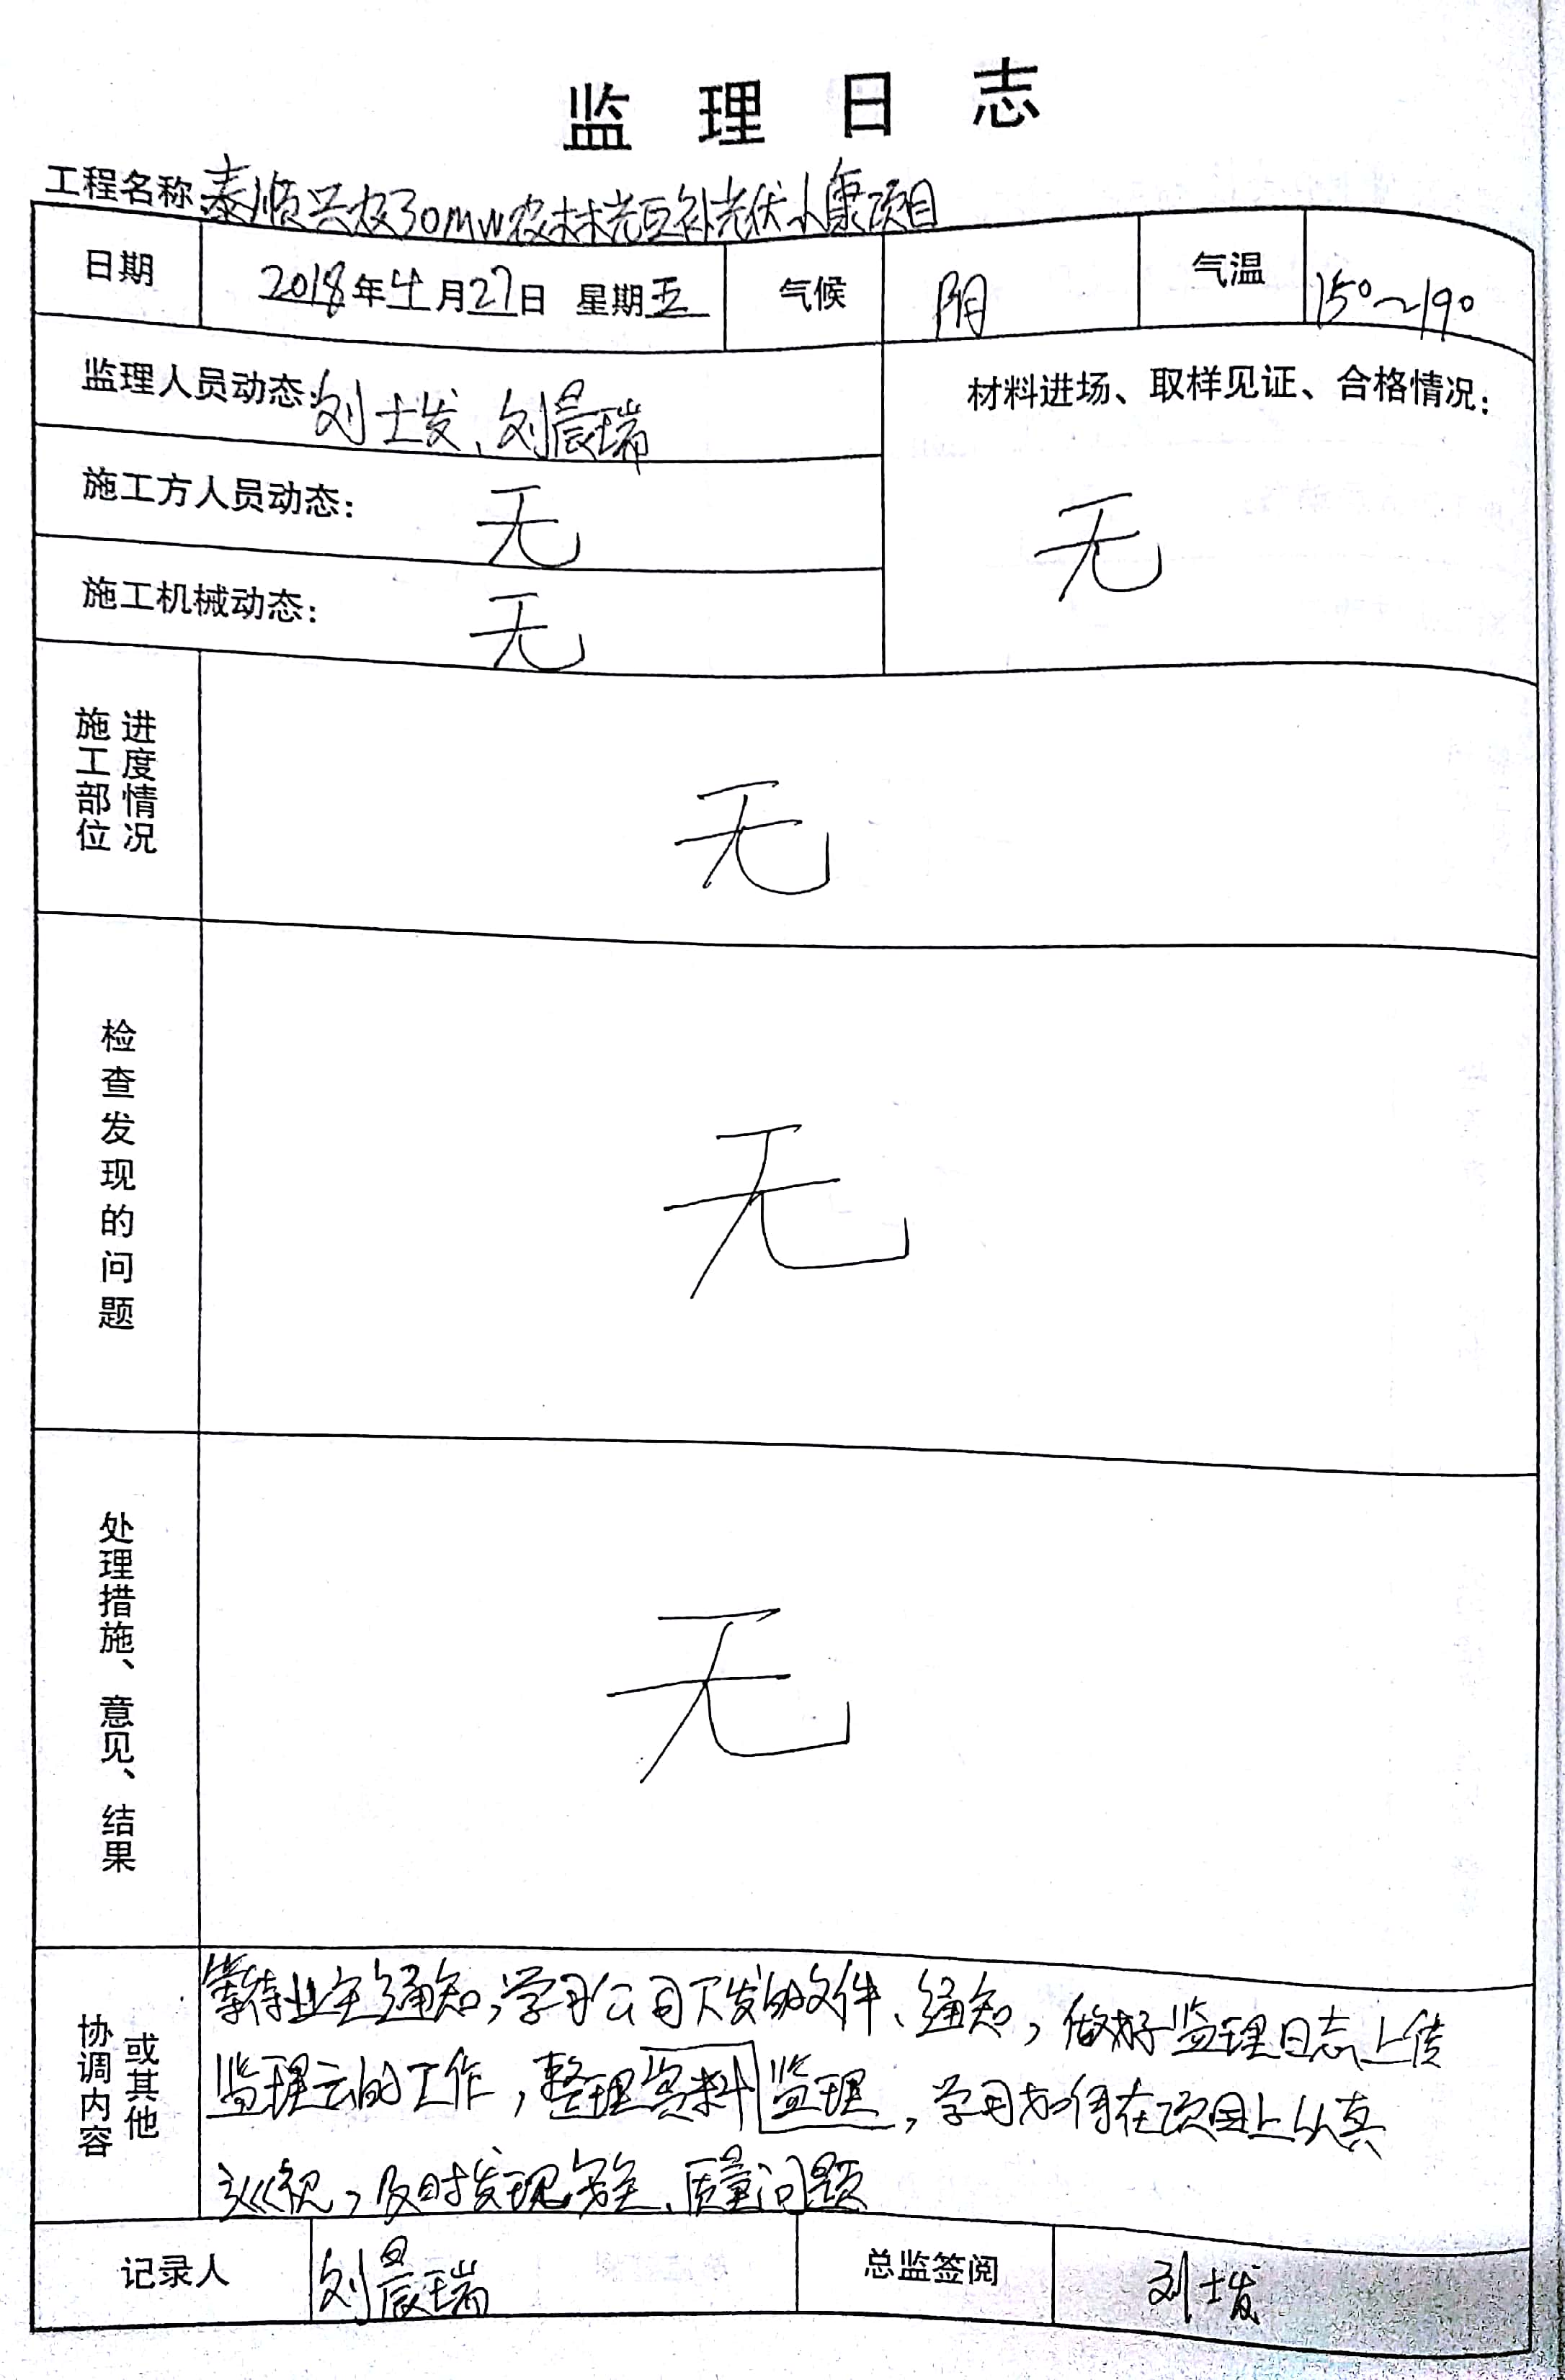 监理日志
工程名称 泰顺兴极30MW农林光互补光伏小康项目
日期 2018年4月27日 星期五 气候 阴 气温 15°~19°
监理人员动态 刘士发、刘晨瑞
材料进场、取样见证、合格情况:
无
施工方人员动态: 无
施工机械动态: 无
施工部位 进度情况
无
检查发现的问题
无
处理措施、意见、结果
无
协调内容 或其他
等待业主通知,学习公司下发的文件、通知,做好监理日志上传
监理云的工作,整理资料监理,学习如何在项目上认真
巡视,及时发现安全、质量问题
记录人 刘晨瑞 总监签阅 刘士发